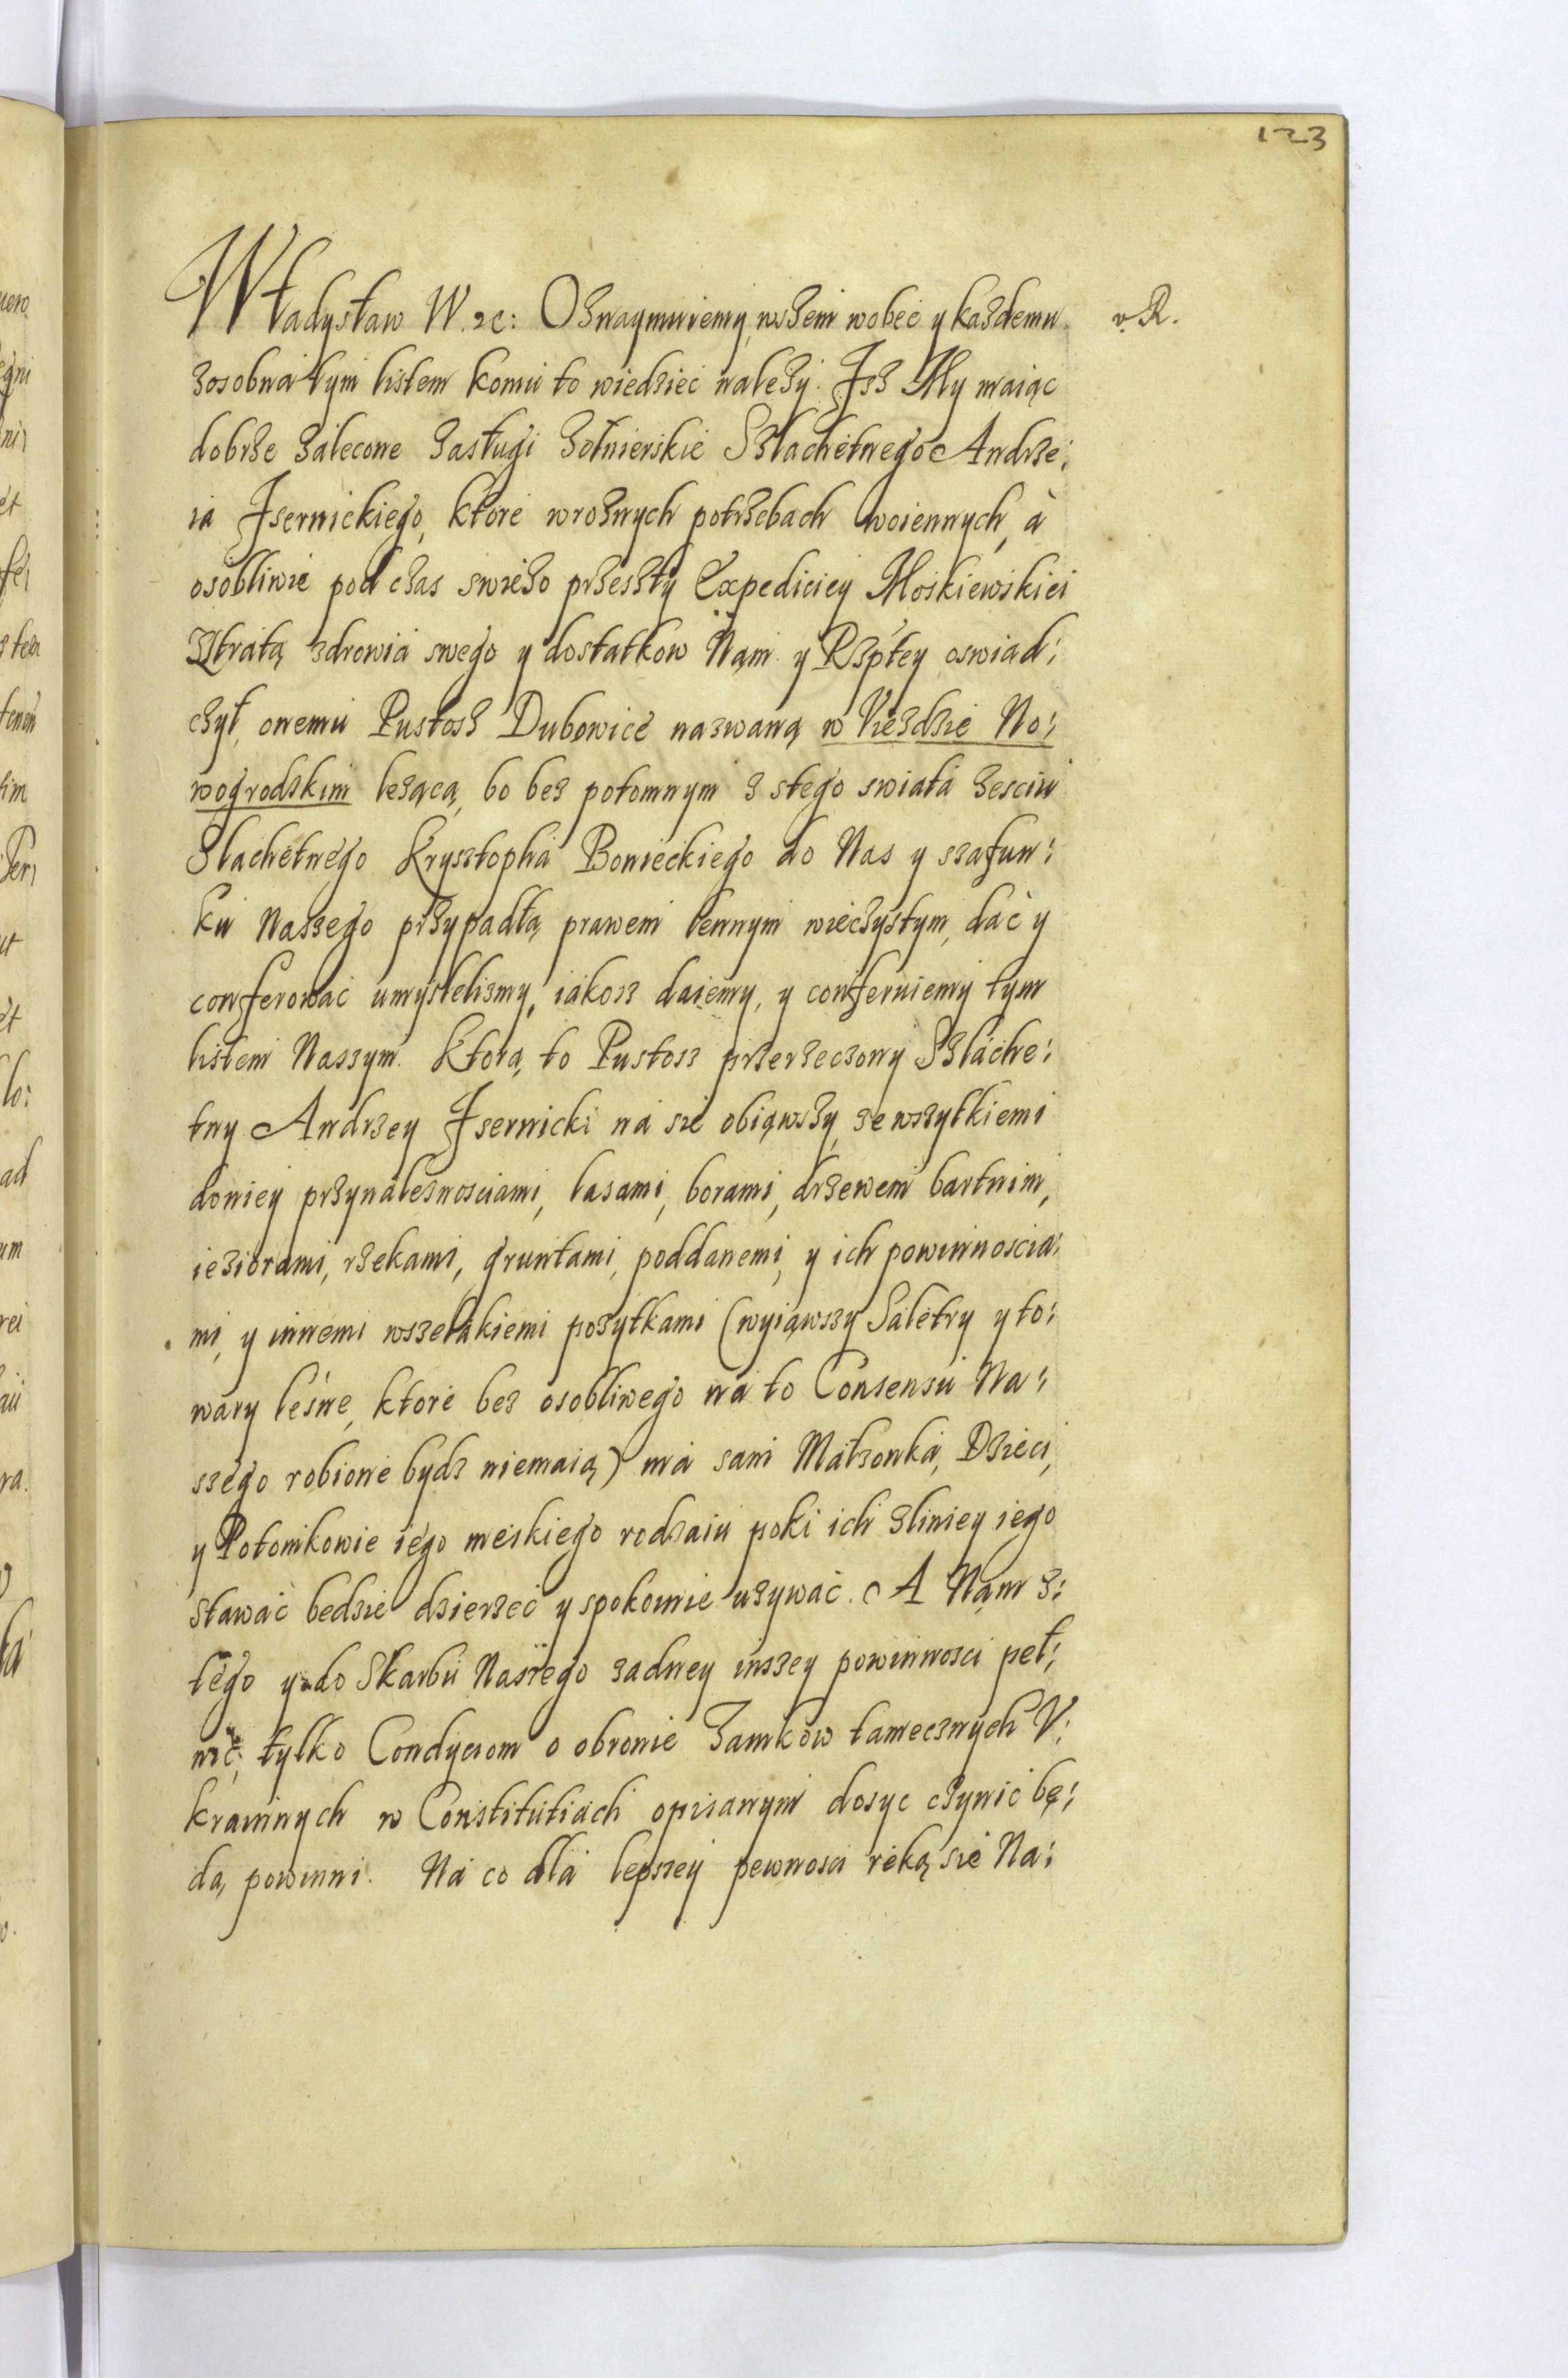 123
Władysław IV. etc: Oznaymuiemy, wszem wobec y każdemu v. R.
zosobna tym listem komu to wiedzieć należy. Jsz My maiąc
dobrze zalecone zasługi żołnierskie Szlachetnego Andrze:
ia Jsernickiego, ktore wrożnych potrzebach woiennych, à
osobliwie pod czas swieżo przeszły Expediciey Moskiewskiei
Ztratą zdrowia swego y dostatkow Nąm y Rzptey oswiad:
czył, onemu Pustosz Dubowice nazwaną w Uieżdzie No:
wogrodzkim leżącą, bo bez potomnym z stego swiata zesciu
Slachetnego Krysztopha Bonieckiego do Nas y szafun:
ku Naszego przypadłą, prawem lennym wieczystym, dać y
conferować umyslelismy, iakosz daiemy, y conferuiemy tym
listem Naszym. Ktorą to Pustosz przerzeczony Szlache:
tny Andrzey Jsernicki na sie obiąwszy, ze wszytkiemi
doniey przynależnosciami, lasami, borami, drzewem bartnim,
ieziorami, rzekami, gruntami, poddanemi, y ich powinnoscia:
mi, y innemi wszelakiemi pożytkami (wyiąwszy Saletry y to:
wary leśne, ktore bez osobliwego na to Consensu Na:
szego robione bydz niemaią) ma sam Małżonka, Dzieci,
y Potomkowie iego męskiego rodzaiu poki ich zliniey iego
stawać będzie dzierżeć y spokoinie używać. A Nąm z:
tego y do Skarbu Naszego żadney inszey powinnosci peł:
nić, tylko Condyciom o obronie Zamkow tamecznych V:
krainnych w Constitutiach opisanym dosyc czynić bę:
dą powinni. Na co dla lepszey pewnosci ręką sie Na: